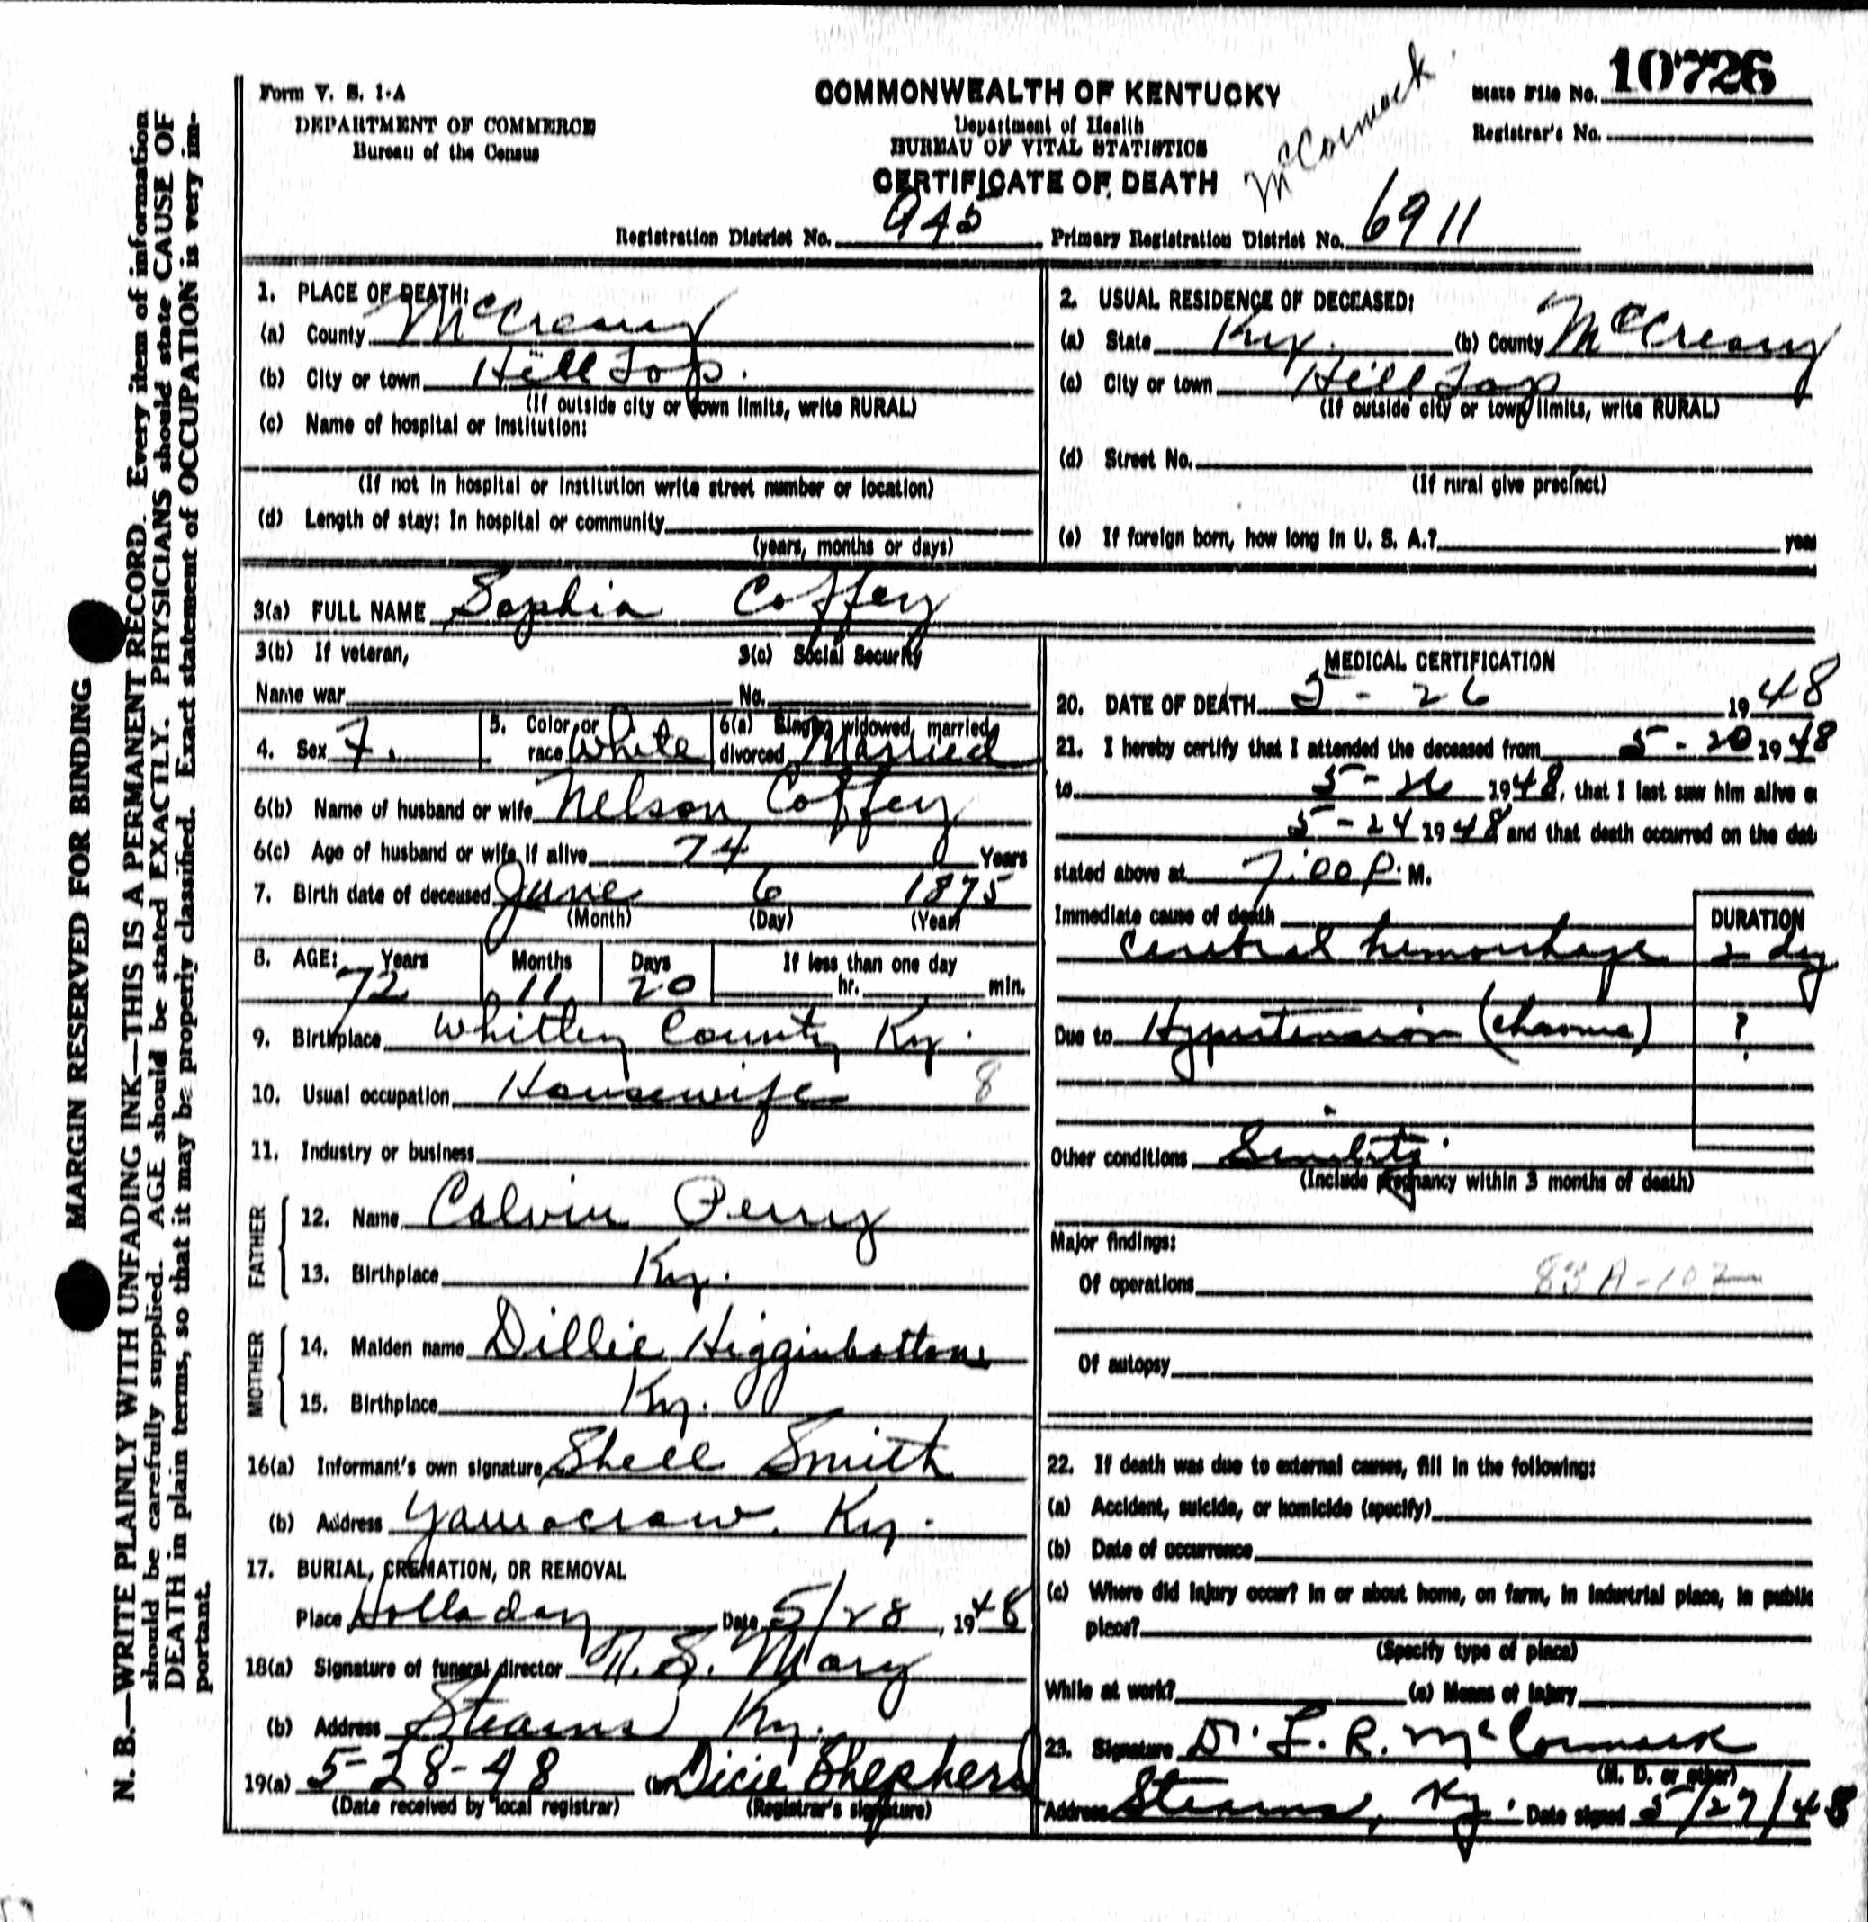 Form V. S. 1-A
DEPARTMENT OF COMMERCE
Bureau of the Census
COMMONWEALTH OF KENTUCKY
Department of Health
BUREAU OF VITAL STATISTICS
CERTIFICATE OF DEATH
McCormack
State File No. 10726
Registrar's No.
Registration District No. 945 Primary Registration District No. 6911
1. PLACE OF DEATH:
(a) County McCreary
(b) City or town Hill Top.
(If outside city or town limits, write RURAL)
(c) Name of hospital or institution:
(If not in hospital or institution write street number or location)
(d) Length of stay: In hospital or community
(years, months or days)
2. USUAL RESIDENCE OF DECEASED:
(a) State Ky. (b) County McCreary
(c) City or town Hill Top
(If outside city or town limits, write RURAL)
(d) Street No.
(If rural give precinct)
(e) If foreign born, how long in U. S. A.? year
3(a) FULL NAME Sophia Coffey
3(b) If veteran, 3(c) Social Security
Name war No.
4. Sex F. 5. Color or race White 6(a) Single, widowed, married, divorced Married
6(b) Name of husband or wife Nelson Coffey
6(c) Age of husband or wife if alive 74 Years
7. Birth date of deceased June 6 1875
(Month) (Day) (Year)
8. AGE: Years Months Days If less than one day
72 11 20 hr. min.
9. Birthplace Whitley County Ky.
10. Usual occupation Housewife 8
11. Industry or business
FATHER
12. Name Calvin Perry
13. Birthplace Ky.
MOTHER
14. Maiden name Dillie Higginbottom
15. Birthplace Ky.
16(a) Informant's own signature Shell Smith
(b) Address Yamacraw, Ky.
17. BURIAL, CREMATION, OR REMOVAL
Place Holladay Date 5/28, 1948
18(a) Signature of funeral director
(b) Address Stearns Ky.
19(a) 5-28-48 (b) Dicie Shepherd
(Date received by local registrar) (Registrar's signature)
MEDICAL CERTIFICATION
20. DATE OF DEATH 5-26 1948
21. I hereby certify that I attended the deceased from 5-20 1948
to 5-26 1948, that I last saw him alive o
5-24 1948 and that death occurred on the dat
stated above at 7:00 P. M.
Immediate cause of death DURATION
Cerebral hemorrhage 2 day
Due to Hypertension (chronic) ?
Other conditions Senility
(Include pregnancy within 3 months of death)
Major findings:
Of operations 83A-102
Of autopsy
22. If death was due to external causes, fill in the following:
(a) Accident, suicide, or homicide (specify)
(b) Date of occurrence
(c) Where did injury occur? In or about home, on farm, in industrial place, in public
place?
(Specify type of place)
While at work? (e) Means of injury
23. Signature Dr. F. R. McCormack
(M. D. or other)
Address Stearns, Ky. Date signed 5/27/48
MARGIN RESERVED FOR BINDING
N. B.—WRITE PLAINLY WITH UNFADING INK—THIS IS A PERMANENT RECORD. Every item of information
should be carefully supplied. AGE should be stated EXACTLY. PHYSICIANS should state CAUSE OF
DEATH in plain terms, so that it may be properly classified. Exact statement of OCCUPATION is very im-
portant.